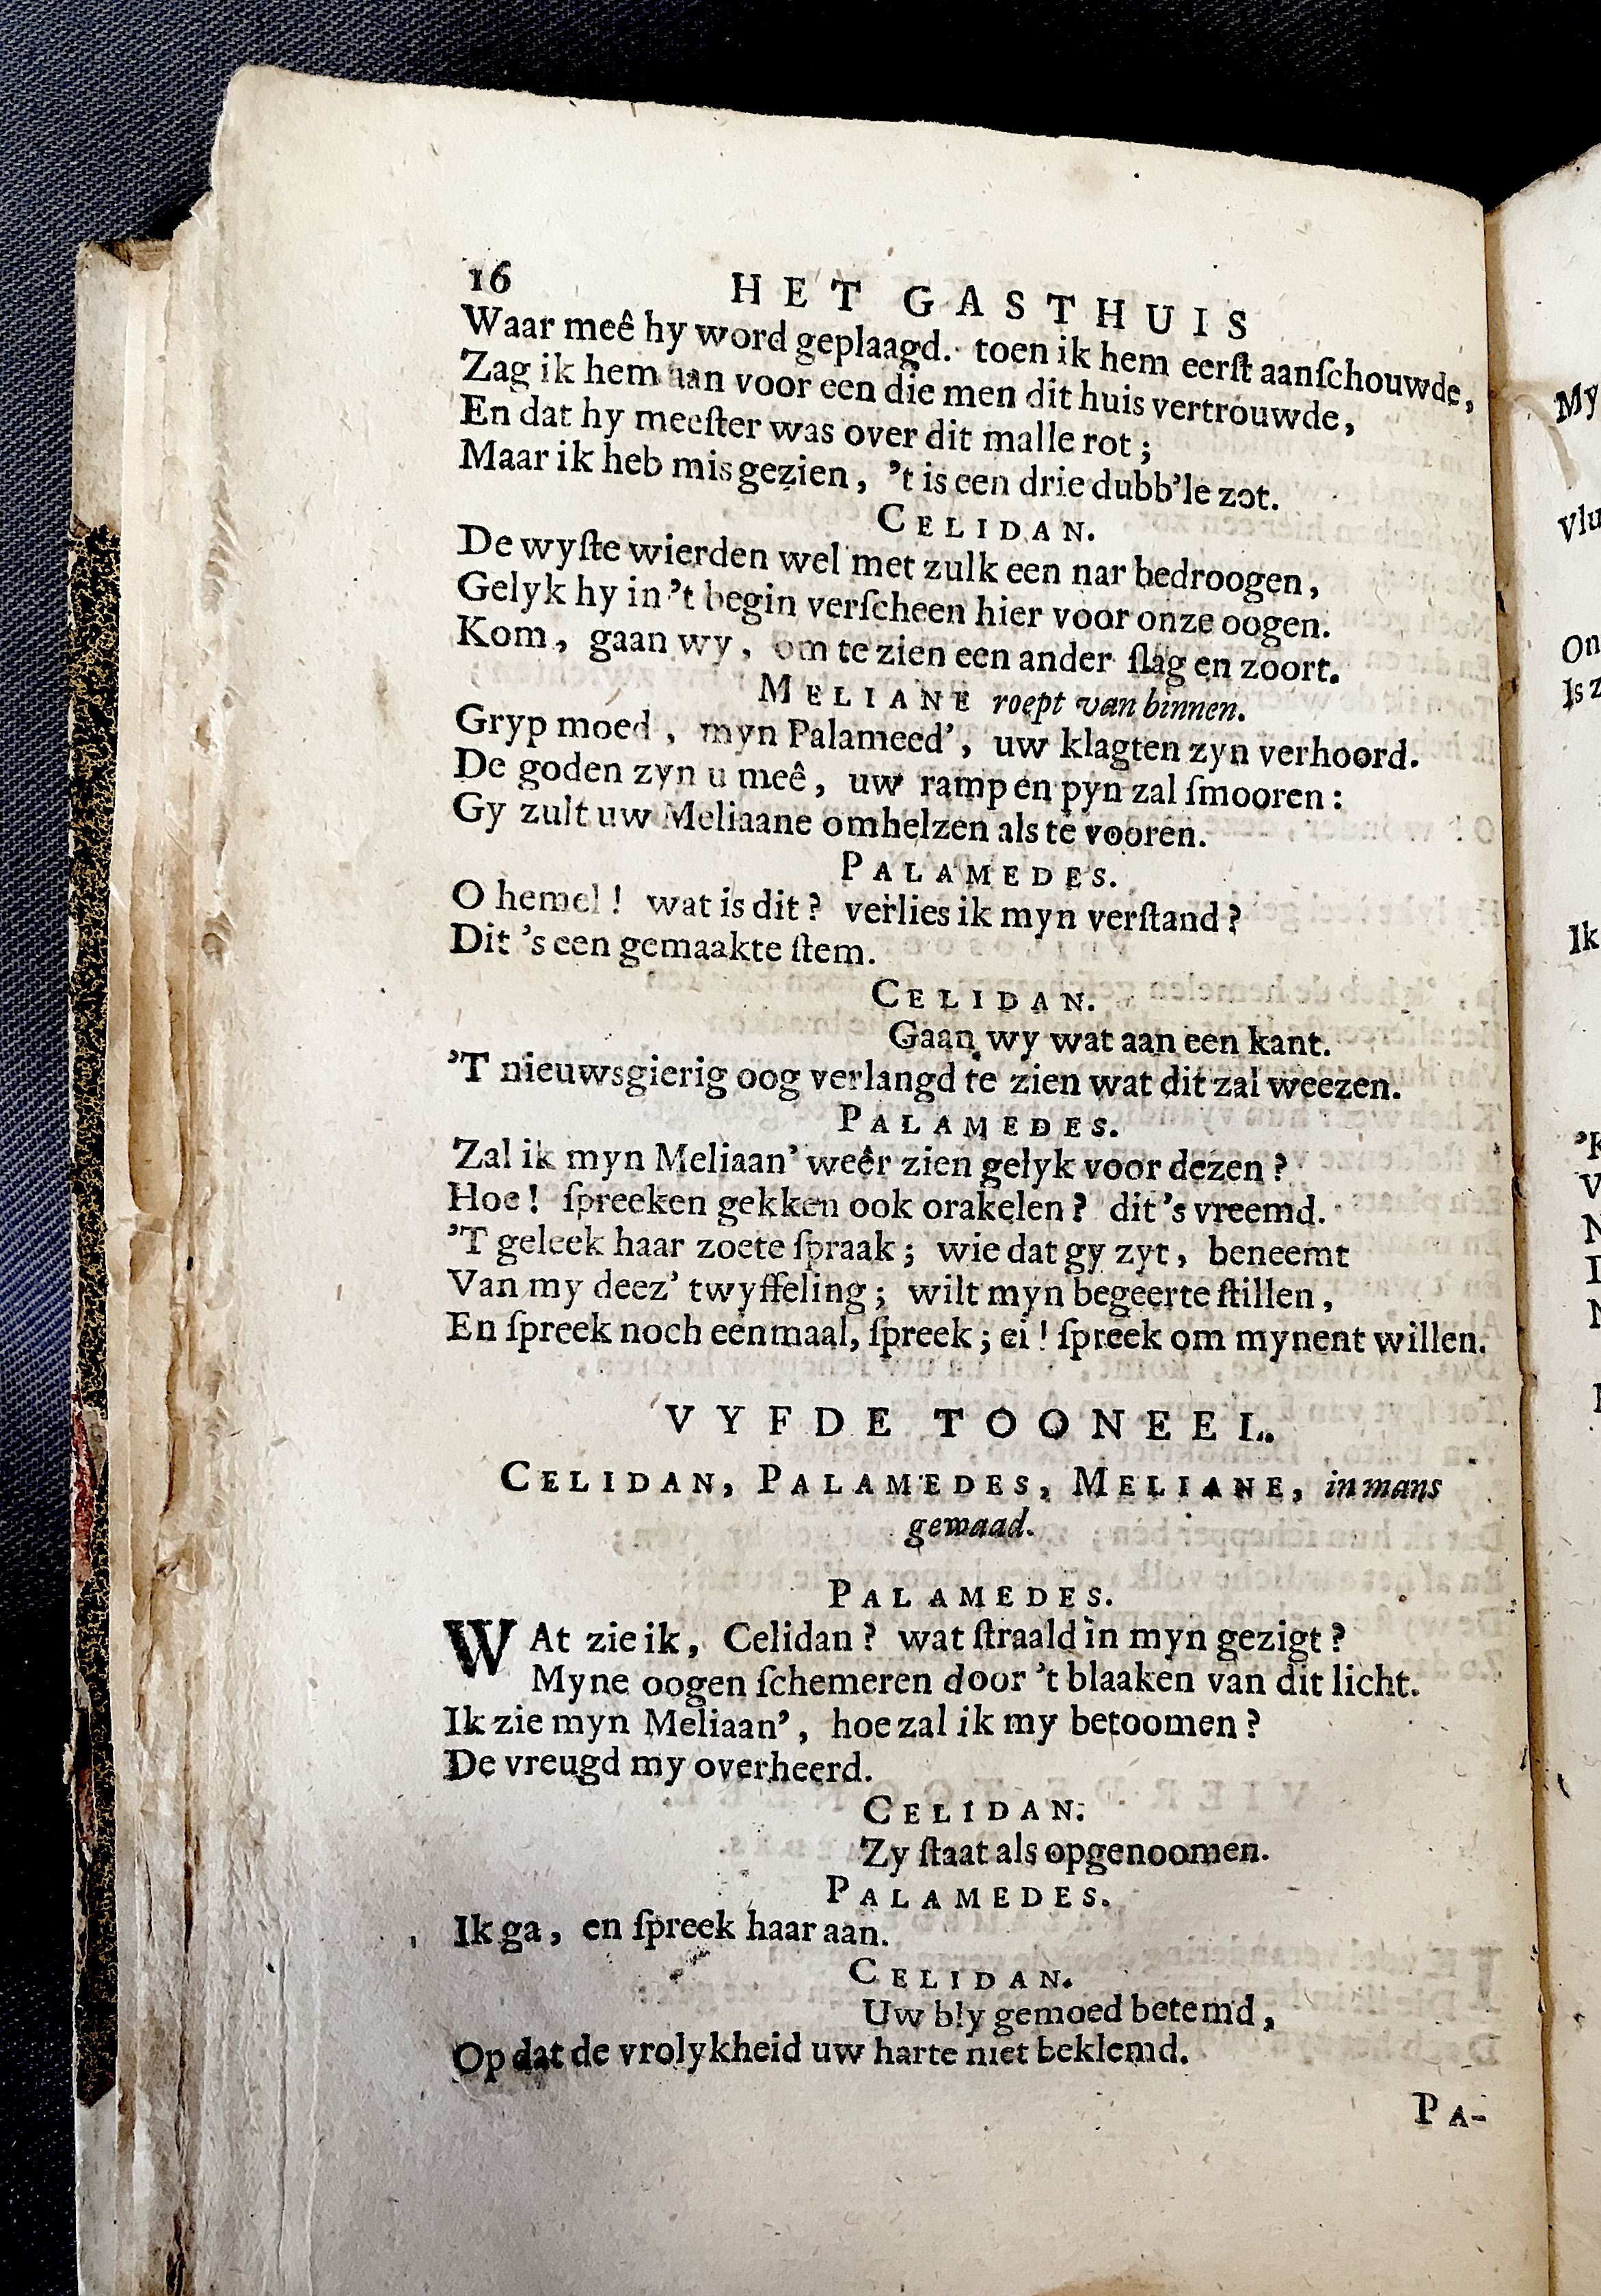 16 HET GASTHUIS
Waar meê hy word geplaagd. toen ik hem eerſt aanſchouwde,
Zag ik hem aan voor een die men dit huis vertrouwde,
En dat hy meeſter was over dit malle rot;
Maar ik heb mis gezien, 't is een drie dubb'le zot.
CELIDAN.
De wyſte wierden wel met zulk een nar bedroogen,
Gelyk hy in 't begin verſcheen hier voor onze oogen.
Kom, gaan wy, om te zien een ander ſlag en zoort.
MELIANE roept van binnen.
Gryp moed, myn Palameed', uw klagten zyn verhoord.
De goden zyn u meê, uw ramp en pyn zal ſmooren:
Gy zult uw Meliaane omhelzen als te vooren.
PALAMEDES.
O hemel! wat is dit? verlies ik myn verſtand?
Dit 's een gemaakte ſtem.
CELIDAN.
Gaan wy wat aan een kant.
'T nieuwsgierig oog verlangd te zien wat dit zal weezen.
PALAMEDES.
Zal ik myn Meliaan' weêr zien gelyk voor dezen?
Hoe! ſpreeken gekken ook orakelen? dit 's vreemd.
'T geleek haar zoete ſpraak; wie dat gy zyt, beneemt
Van my deez' twyffeling; wilt myn begeerte ſtillen,
En ſpreek noch eenmaal, ſpreek; ei! ſpreek om mynent willen.
VYFDE TOONEEL.
CELIDAN, PALAMEDES, MELIANE, in mans
gewaad.
PALAMEDES.
WAt zie ik, Celidan? wat ſtraald in myn gezigt?
Myne oogen ſchemeren door 't blaaken van dit licht.
Ik zie myn Meliaan', hoe zal ik my betoomen?
De vreugd my overheerd.
CELIDAN.
Zy ſtaat als opgenoomen.
PALAMEDES.
Ik ga, en ſpreek haar aan.
CELIDAN.
Uw bly gemoed betemd,
Op dat de vrolykheid uw harte niet beklemd.
PA-
My
Vlu
On
Is z
Ik